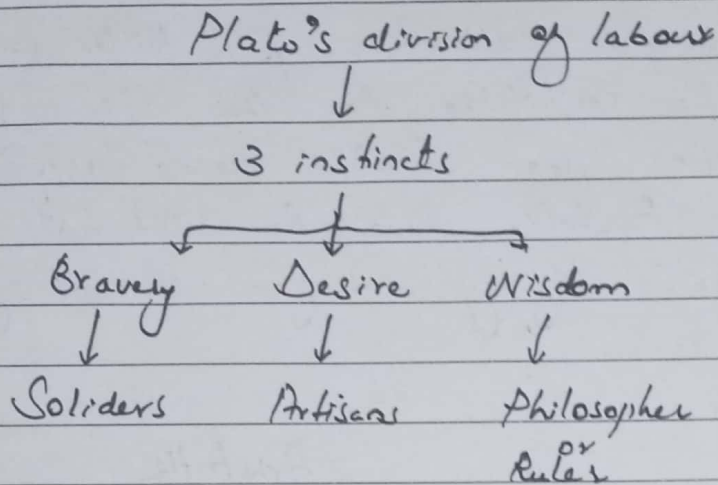 Plato's division of labour
3 instincts
Bravery Desire Wisdom
Soliders Artisans Philosopher
or
Ruler